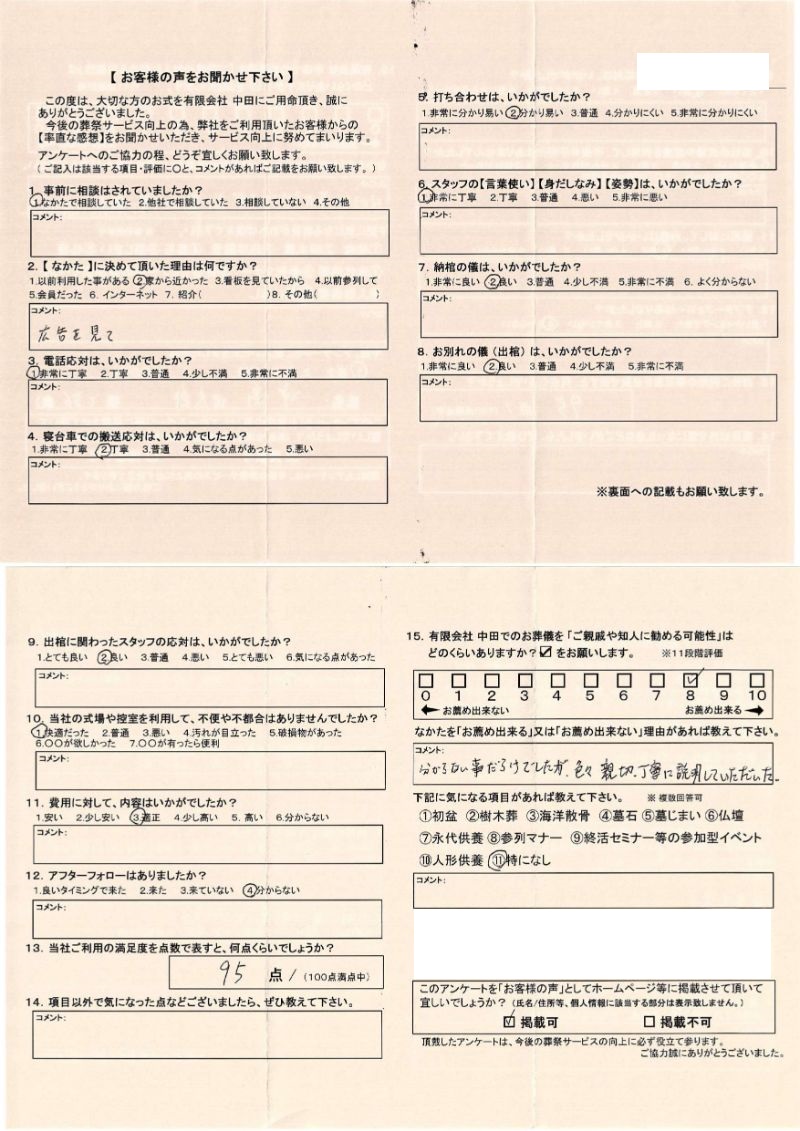 【 お客様の声をお聞かせ下さい 】
この度は、大切な方のお式を有限会社 中田にご用命頂き、誠に
ありがとうございました。
今後の葬祭サービス向上の為、弊社をご利用頂いたお客様からの
【率直な感想】をお聞かせいただき、サービス向上に努めてまいります。
アンケートへのご協力の程、どうぞ宜しくお願い致します。
（ご記入は該当する項目・評価に○と、コメントがあればご記載をお願い致します。）
1. 事前に相談はされていましたか？
1.なかたで相談していた 2.他社で相談していた 3.相談していない 4.その他
コメント:
2.【 なかた 】に決めて頂いた理由は何ですか？
1.以前利用した事がある 2.家から近かった 3.看板を見ていたから 4.以前参列して
5.会員だった 6. インターネット 7. 紹介( )8. その他( )
コメント:
広告を見て
3. 電話応対は、いかがでしたか？
1.非常に丁寧 2.丁寧 3.普通 4.少し不満 5.非常に不満
コメント:
4. 寝台車での搬送応対は、いかがでしたか？
1.非常に丁寧 2.丁寧 3.普通 4.気になる点があった 5.悪い
コメント:
5. 打ち合わせは、いかがでしたか？
1.非常に分かり易い 2.分かり易い 3.普通 4.分かりにくい 5.非常に分かりにくい
コメント:
6. スタッフの【言葉使い】【身だしなみ】【姿勢】は、いかがでしたか？
1.非常に丁寧 2.丁寧 3.普通 4.悪い 5.非常に悪い
コメント:
7. 納棺の儀は、いかがでしたか？
1.非常に良い 2.良い 3.普通 4.少し不満 5.非常に不満 6. よく分からない
コメント:
8. お別れの儀（出棺）は、いかがでしたか？
1.非常に良い 2.良い 3.普通 4.少し不満 5.非常に不満
コメント:
※裏面への記載もお願い致します。
9. 出棺に関わったスタッフの応対は、いかがでしたか？
1.とても良い 2.良い 3.普通 4.悪い 5.とても悪い 6.気になる点があった
コメント:
10. 当社の式場や控室を利用して、不便や不都合はありませんでしたか？
1.快適だった 2.普通 3.悪い 4.汚れが目立った 5.破損物があった
6.○○が欲しかった 7.○○が有ったら便利
コメント:
11. 費用に対して、内容はいかがでしたか？
1.安い 2.少し安い 3.適正 4.少し高い 5. 高い 6.分からない
コメント:
12. アフターフォローはありましたか？
1.良いタイミングで来た 2.来た 3.来ていない 4.分からない
コメント:
13. 当社ご利用の満足度を点数で表すと、何点くらいでしょうか？
95 点 / (100点満点中)
14. 項目以外で気になった点などございましたら、ぜひ教えて下さい。
コメント:
15. 有限会社 中田でのお葬儀を「ご親戚や知人に勧める可能性」は
どのくらいありますか？☑をお願いします。 ※11段階評価
0 1 2 3 4 5 6 7 8 9 10
お薦め出来ない お薦め出来る
なかたを「お薦め出来る」又は「お薦め出来ない」理由があれば教えて下さい。
コメント:
分からない事だらけでしたが、色々 親切、丁寧に説明していただいた。
下記に気になる項目があれば教えて下さい。 ※ 複数回答可
①初盆 ②樹木葬 ③海洋散骨 ④墓石 ⑤墓じまい ⑥仏壇
⑦永代供養 ⑧参列マナー ⑨終活セミナー等の参加型イベント
⑩人形供養 ⑪特になし
コメント:
このアンケートを「お客様の声」としてホームページ等に掲載させて頂いて
宜しいでしょうか？（氏名/住所等、個人情報に該当する部分は表示致しません。）
☑ 掲載可 □ 掲載不可
頂戴したアンケートは、今後の葬祭サービスの向上に必ず役立て参ります。
ご協力誠にありがとうございました。